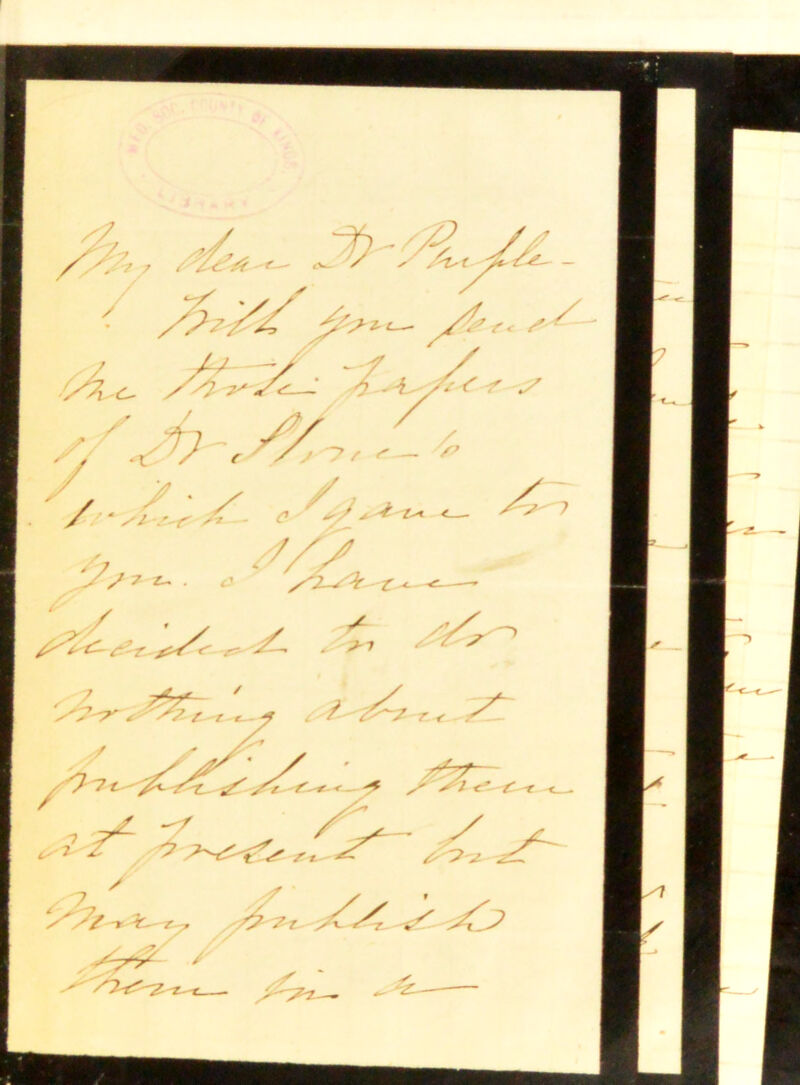 MED. SOC. COUNTY OF KINGS.
LIBRARY
My dear Dr Purple-
Will you send
me those papers
of Dr Stone's
which I gave to
you. I have
decided to do
nothing about
publishing them
at present but
may publish
them in a